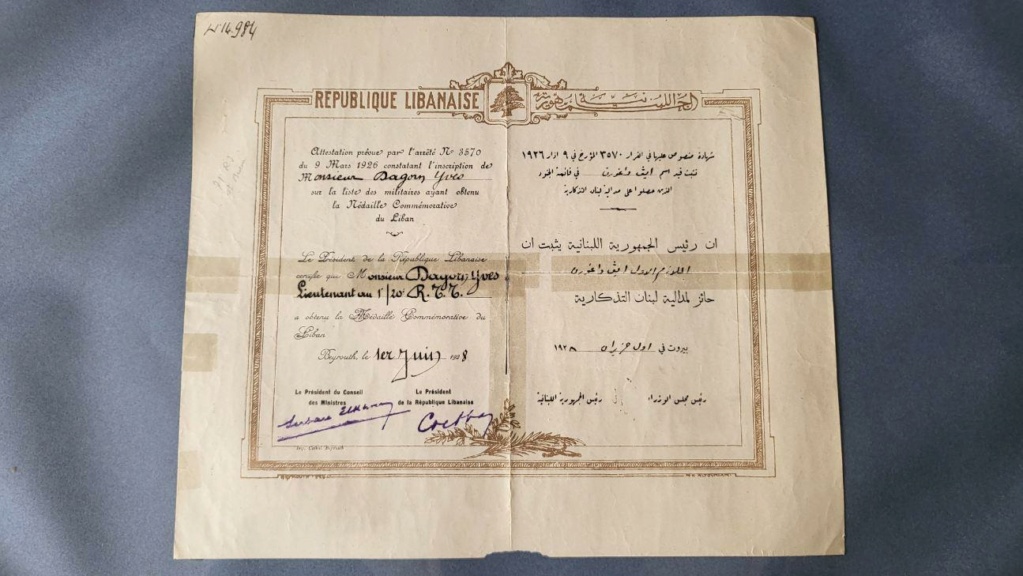 N° 14.984
REPUBLIQUE LIBANAISE
الجمهورية اللبنانية
Attestation prévue par l'arrêté N° 3570
du 9 Mars 1926 constatant l'inscription de
Monsieur Dagorn Yves
sur la liste des militaires ayant obtenu
la Médaille Commémorative
du Liban
Le Président de la République Libanaise
certifie que Monsieur Dagorn Yves
Lieutenant au 1/20e R.T.T.
a obtenu la Médaille Commémorative du
Liban
Beyrouth, le 1er Juin 1928
Le Président du Conseil
des Ministres
Le Président
de la République Libanaise
شهادة منصوص عليها في القرار ٣٥٧٠ المؤرخ في ٩ اذار ١٩٢٦
تثبت قيد اسم ايف داغورن في قائمة الجنود
الذين حصلوا على مدالية لبنان التذكارية
ان رئيس الجمهورية اللبنانية يثبت ان
الملازم الاول ايف داغورن
حائز لمدالية لبنان التذكارية
بيروت في اول حزيران ١٩٢٨
رئيس مجلس الوزراء
رئيس الجمهورية اللبنانية